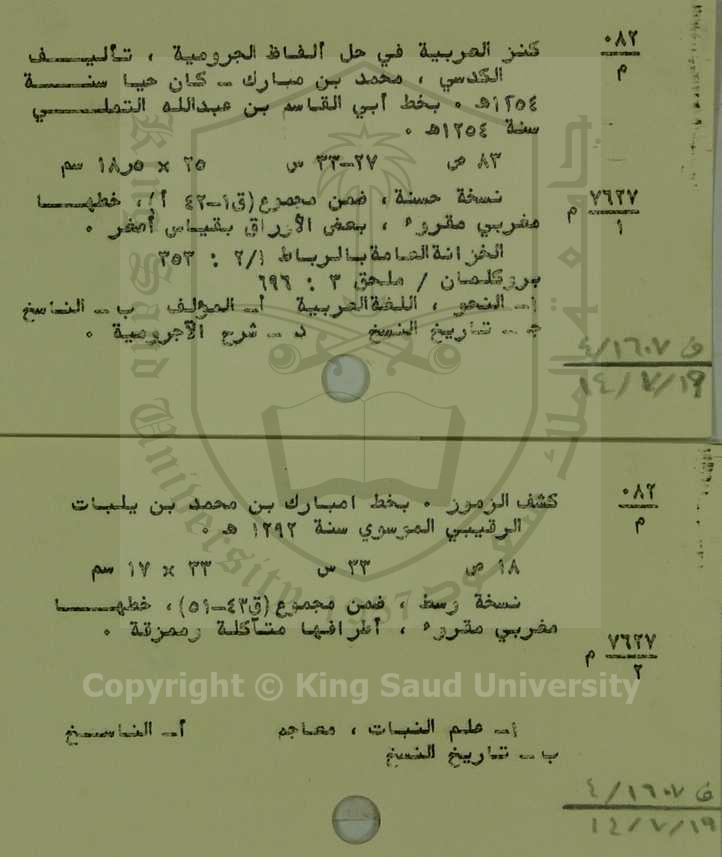 ٠٨٢
م
كنز العربية في حل ألفاظ الجرومية ، تأليف
الكدسي ، محمد بن مبارك ـ كان حيا سنة
١٢٥٤هـ ٠ بخط أبي القاسم بن عبدالله التملي
سنة ١٢٥٤هـ ٠
٨٣ ق ٢٧-٣٣ س ٢٥ × ١٨٫٥ سم
٧٦٢٧ م
١
نسخة حسنة ، ضمن مجموع (ق١-٤٢ أ) ، خطها
مغربي مقروء ، بعض الأوراق بقياس أصغر ٠
الخزانة العامة بالرباط ٢/١ : ٣٥٣
بروكلمان / ملحق ٣ : ٦٩٦
١ـ النحو ، اللغة العربية أـ المؤلف ب ـ الناسخ
جـ ـ تاريخ النسخ د ـ شرح الآجرومية ٠
ف ٤/١٦٠٧
١٤/٧/١٩
٠٨٢
م
كشف الرموز ٠ بخط امبارك بن محمد بن يلبات
الرقيبي الموسوي سنة ١٢٩٢ هـ ٠
١٨ ص ٣٣ س ٣٣ × ١٧ سم
نسخة وسط ، ضمن مجموع (ق٤٣-٥١) ، خطها
مغربي مقروء ، أطرافها متآكلة وممزقة ٠
٧٦٢٧ م
٢
Copyright © King Saud University
١ـ علم النبات ، معاجم أـ الناسخ
ب ـ تاريخ النسخ
ف ٤/١٦٠٧
١٤/٧/١٩
King Saud University
جامعة الملك سعود